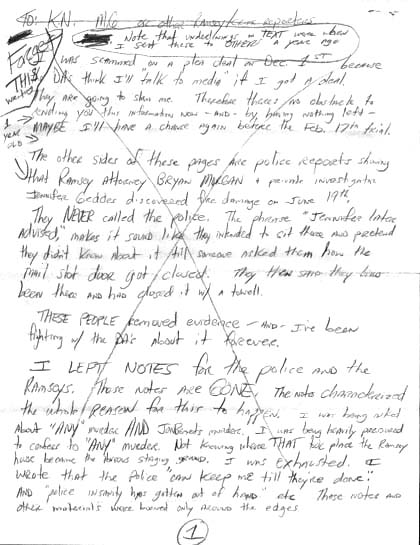 TO: K.N. Mko or other Ramsey/crime reporters
Note that underlinings in TEXT were when
I sent these to OTHERS a year ago
Forget
THIS
1
year
old
was scammed on a plea deal on Dec. 1st because
DA's think I'll talk to media if I got a deal.
They are going to slam me. Therefore there's no obstacle to
sending you this information now - and - by having nothing left -
MAYBE I'll have a chance again before the Feb. 12th trial.
The other sides of these pages are police reports showing
that Ramsey Attorney BRYAN MORGAN + private investigator
Jennifer Geddes discovered fire damage on June 19th.
They NEVER called the police. The phrase "Jennifer later
advised," makes it sound like they intended to sit there and pretend
they didn't know about it till someone asked them how the
mail slot door got closed. They then said they had
been there and had closed it w/ a towell.
THESE PEOPLE removed evidence - AND - I've been
fighting w/ the DA's about it forever.
I LEFT NOTES for the police AND the
RAMSEYS. Those notes ARE GONE. The notes characterized
the whole REASON for this to happen. I was being asked
About "ANY" murder AND JonBenet's murder. I was being pressured
to confess to "ANY" murder. Not knowing where THAT took place the Ramsey
house became the obvious staging ground. I was EXHAUSTED. I
wrote that the police "can keep me till they're done."
AND "police insanity has gotten out of hand" etc. Those notes AND
other materials were burned only around the edges
1